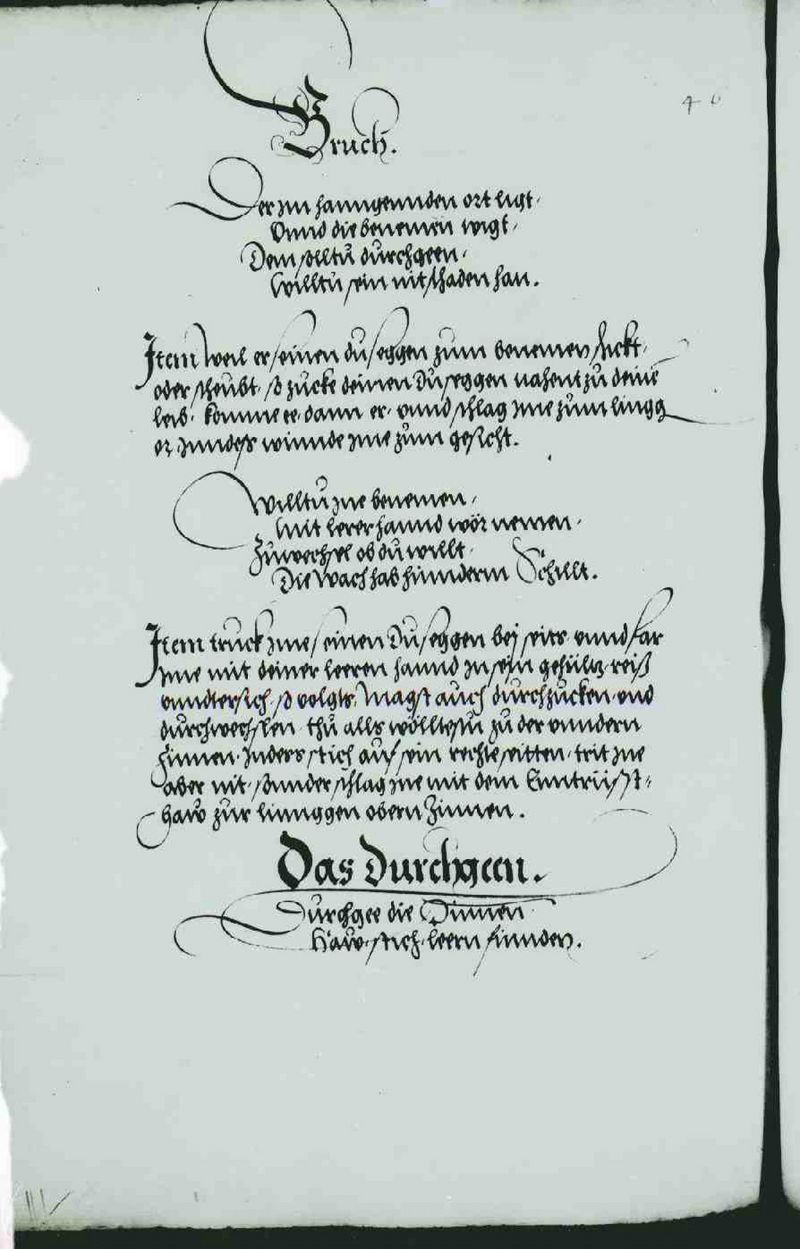 40
Bruch.
Der im hanngennden ort ligt.
Vnnd die benemen wigt.
Dem solltu durchgeen.
Willtu sein nit schaden han.
Item Weil er seinen duseggen zum benemen schickt.
oder scheubt. so zucke deinen Duseggen nahent zu deinē
leib. komme ee dann er. vnnd schlag Ime zum lingg
or. Inndess winnde Ime zum gesicht.
Willtu Ine benemen.
Mit lerer hannd wör nemen.
Zuwechsel ob du willt.
Die Wach hab hinnderm Schillt.
Item truck Ime seinen Duseggen bej seits vnnd far
Ime mit deiner leeren hannd In sein gehültz reiß
vnndtersich. so volgts. Magst auch durchzucken vnd
durchwechslen. thu alls wölltestu zu der vnndern
Zinnen. Inders stich auf sein rechte seitten. trit Ime
aber nit. sonnder schlag Ime mit dem Enntrüsst-
haw zur linnggen obern Zinnen.
Das Durchgeen.
Durchgee die Zinnen.
Haw. stich. leern finnden.